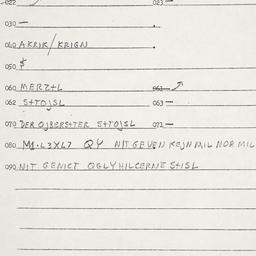 022 023 —
030 —
040 AKRIK/KRIGN
050 $
060 MERZ+L 061
062 S+TOJSL 063 —
070 DER OJBERS+TER S+TOJSL 071 —
080 M1·L3XL7 QY NIT GEVEN KEJN MIL NOR MIL
090 NIT GENICT OGLYHILCERNE S+ISL